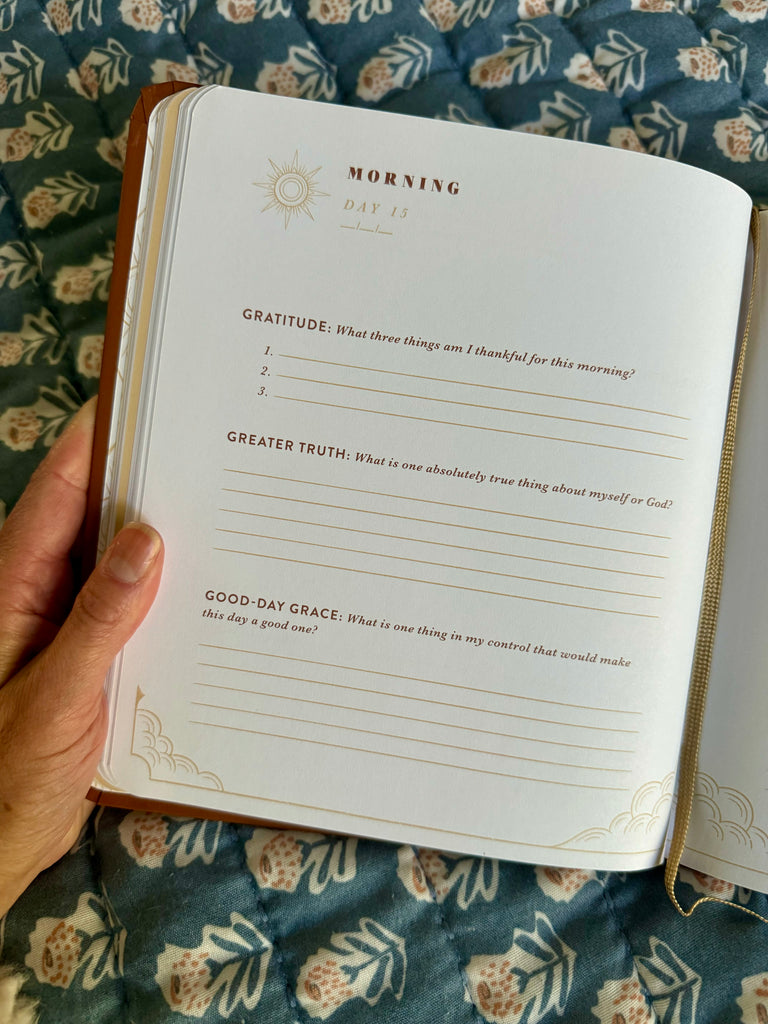 MORNING
DAY 15
__/__/__
GRATITUDE: What three things am I thankful for this morning?
1.
2.
3.
GREATER TRUTH: What is one absolutely true thing about myself or God?
GOOD-DAY GRACE: What is one thing in my control that would make
this day a good one?